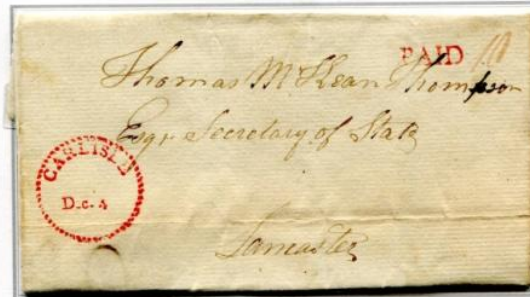 PAID 10
Thomas McKean Thompson
Esqr Secretary of State
CARLISLE
Dec. 4
Lancaster